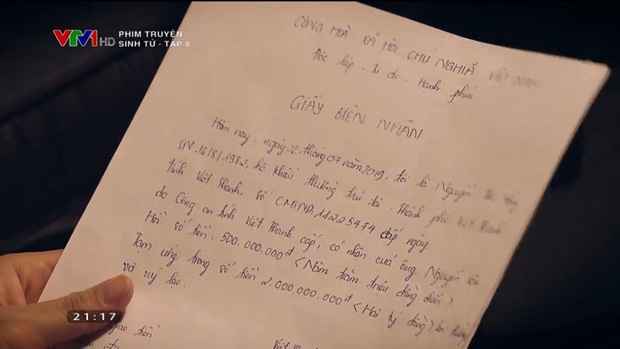 VTV1 HD
PHIM TRUYỆN
SINH TỬ - TẬP 8
CỘNG HOÀ XÃ HỘI CHỦ NGHĨA VIỆT NAM
Độc lập - Tự do - Hạnh phúc
GIẤY BIÊN NHẬN
Hôm nay, ngày 2 tháng 07 năm 2019, tôi là Nguyễn
SN 16/8/1982, hộ khẩu thường trú tại - Thành phố Việt Thanh
tỉnh Việt Thanh, số CMTND 11225474 cấp ngày
do Công an tỉnh Việt Thanh cấp, có nhận của ông Nguyễn
Hải số tiền: 500.000.000đ <Năm trăm triệu đồng chẵn>
Tạm ứng trong số tiền 2.000.000.000đ <Hai tỷ đồng>
và suý lao.
giao tiền
21:17